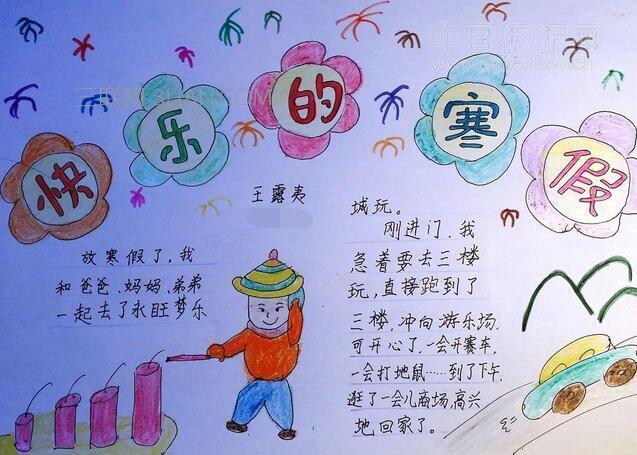 快乐的寒假
王露夷
放寒假了,我
和爸爸、妈妈、弟弟
一起去了永旺梦乐
城玩。
刚进门,我
急着要去三楼
玩,直接跑到了
三楼,冲向游乐场,
可开心了,一会开赛车,
一会打地鼠……到了下午,
逛了一会儿商场,高兴
地回家了。
中国板报网
三联网 3HAN.COM